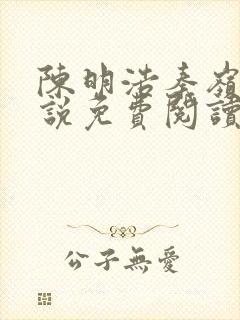 陳明浩秦嶺
說免費閱讀
公子無愛